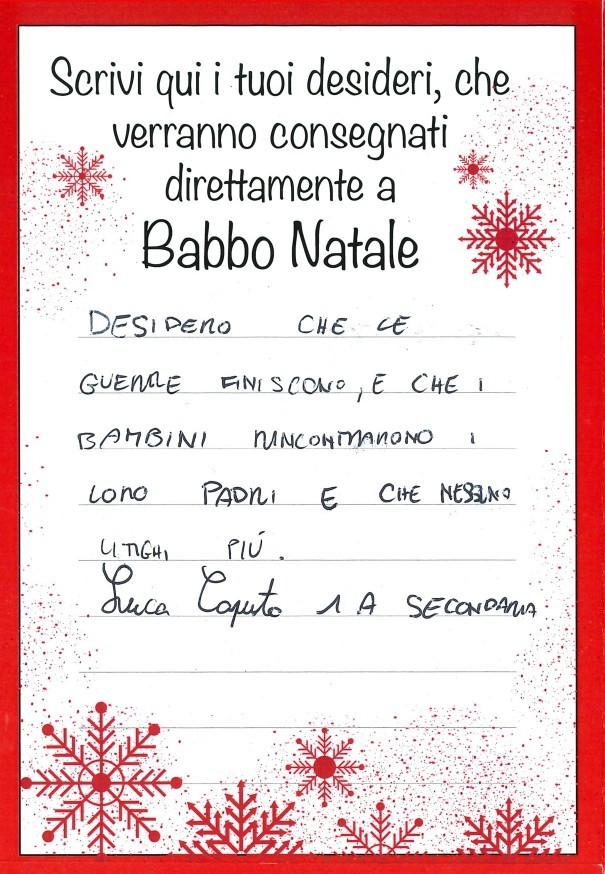 Scrivi qui i tuoi desideri, che
verranno consegnati
direttamente a
Babbo Natale
DESIDERO CHE LE
GUERRE FINISCONO, E CHE I
BAMBINI RINCONTRARONO I
LORO PADRI E CHE NESSUNO
LITIGHI PIÚ.
Luca Caputo 1 A SECONDARIA